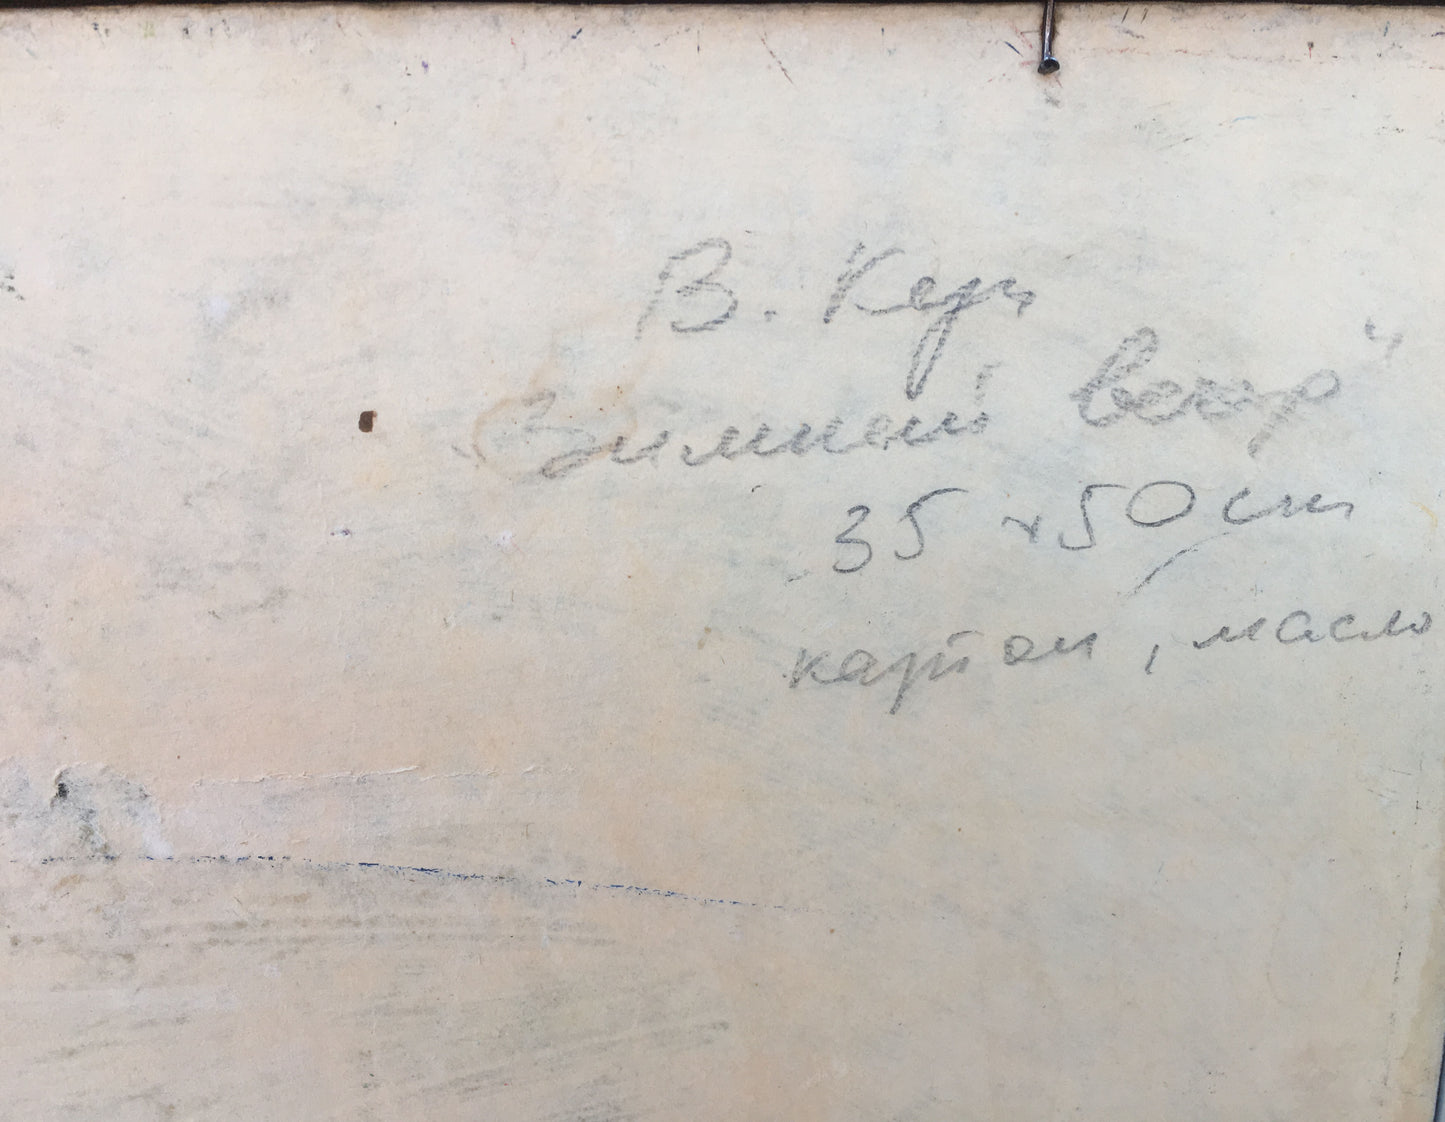 В. Керн
„Зимний вечер"
35 x 50 cm
картон, масло